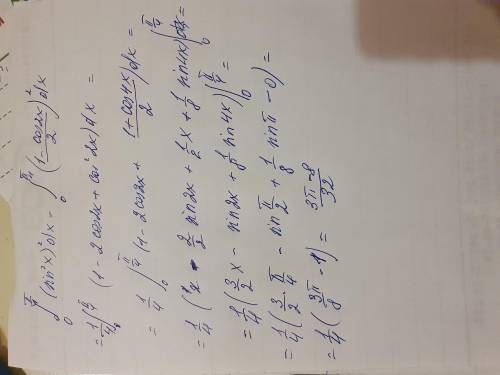 ∫₀^{π/4} (sin²x)² dx = ∫₀^{π/4} ((1 - cos2x)/2)² dx
= 1/4 ∫₀^{π/4} (1 - 2cos2x + cos²2x) dx =
= 1/4 ∫₀^{π/4} (1 - 2cos2x + (1 + cos4x)/2) dx =
= 1/4 (x - 2/2 sin2x + 1/2 x + 1/8 sin4x) |₀^{π/4} =
= 1/4 (3/2 x - sin2x + 1/8 sin4x) |₀^{π/4} =
= 1/4 (3/2 · π/4 - sin π/2 + 1/8 sin π - 0) =
= 1/4 (3π/8 - 1) = (3π - 8)/32